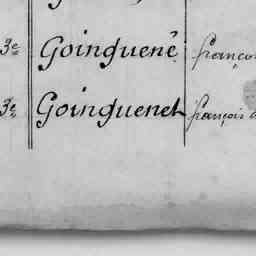 3e Goinguenê françoi
3e Goinguenet françois